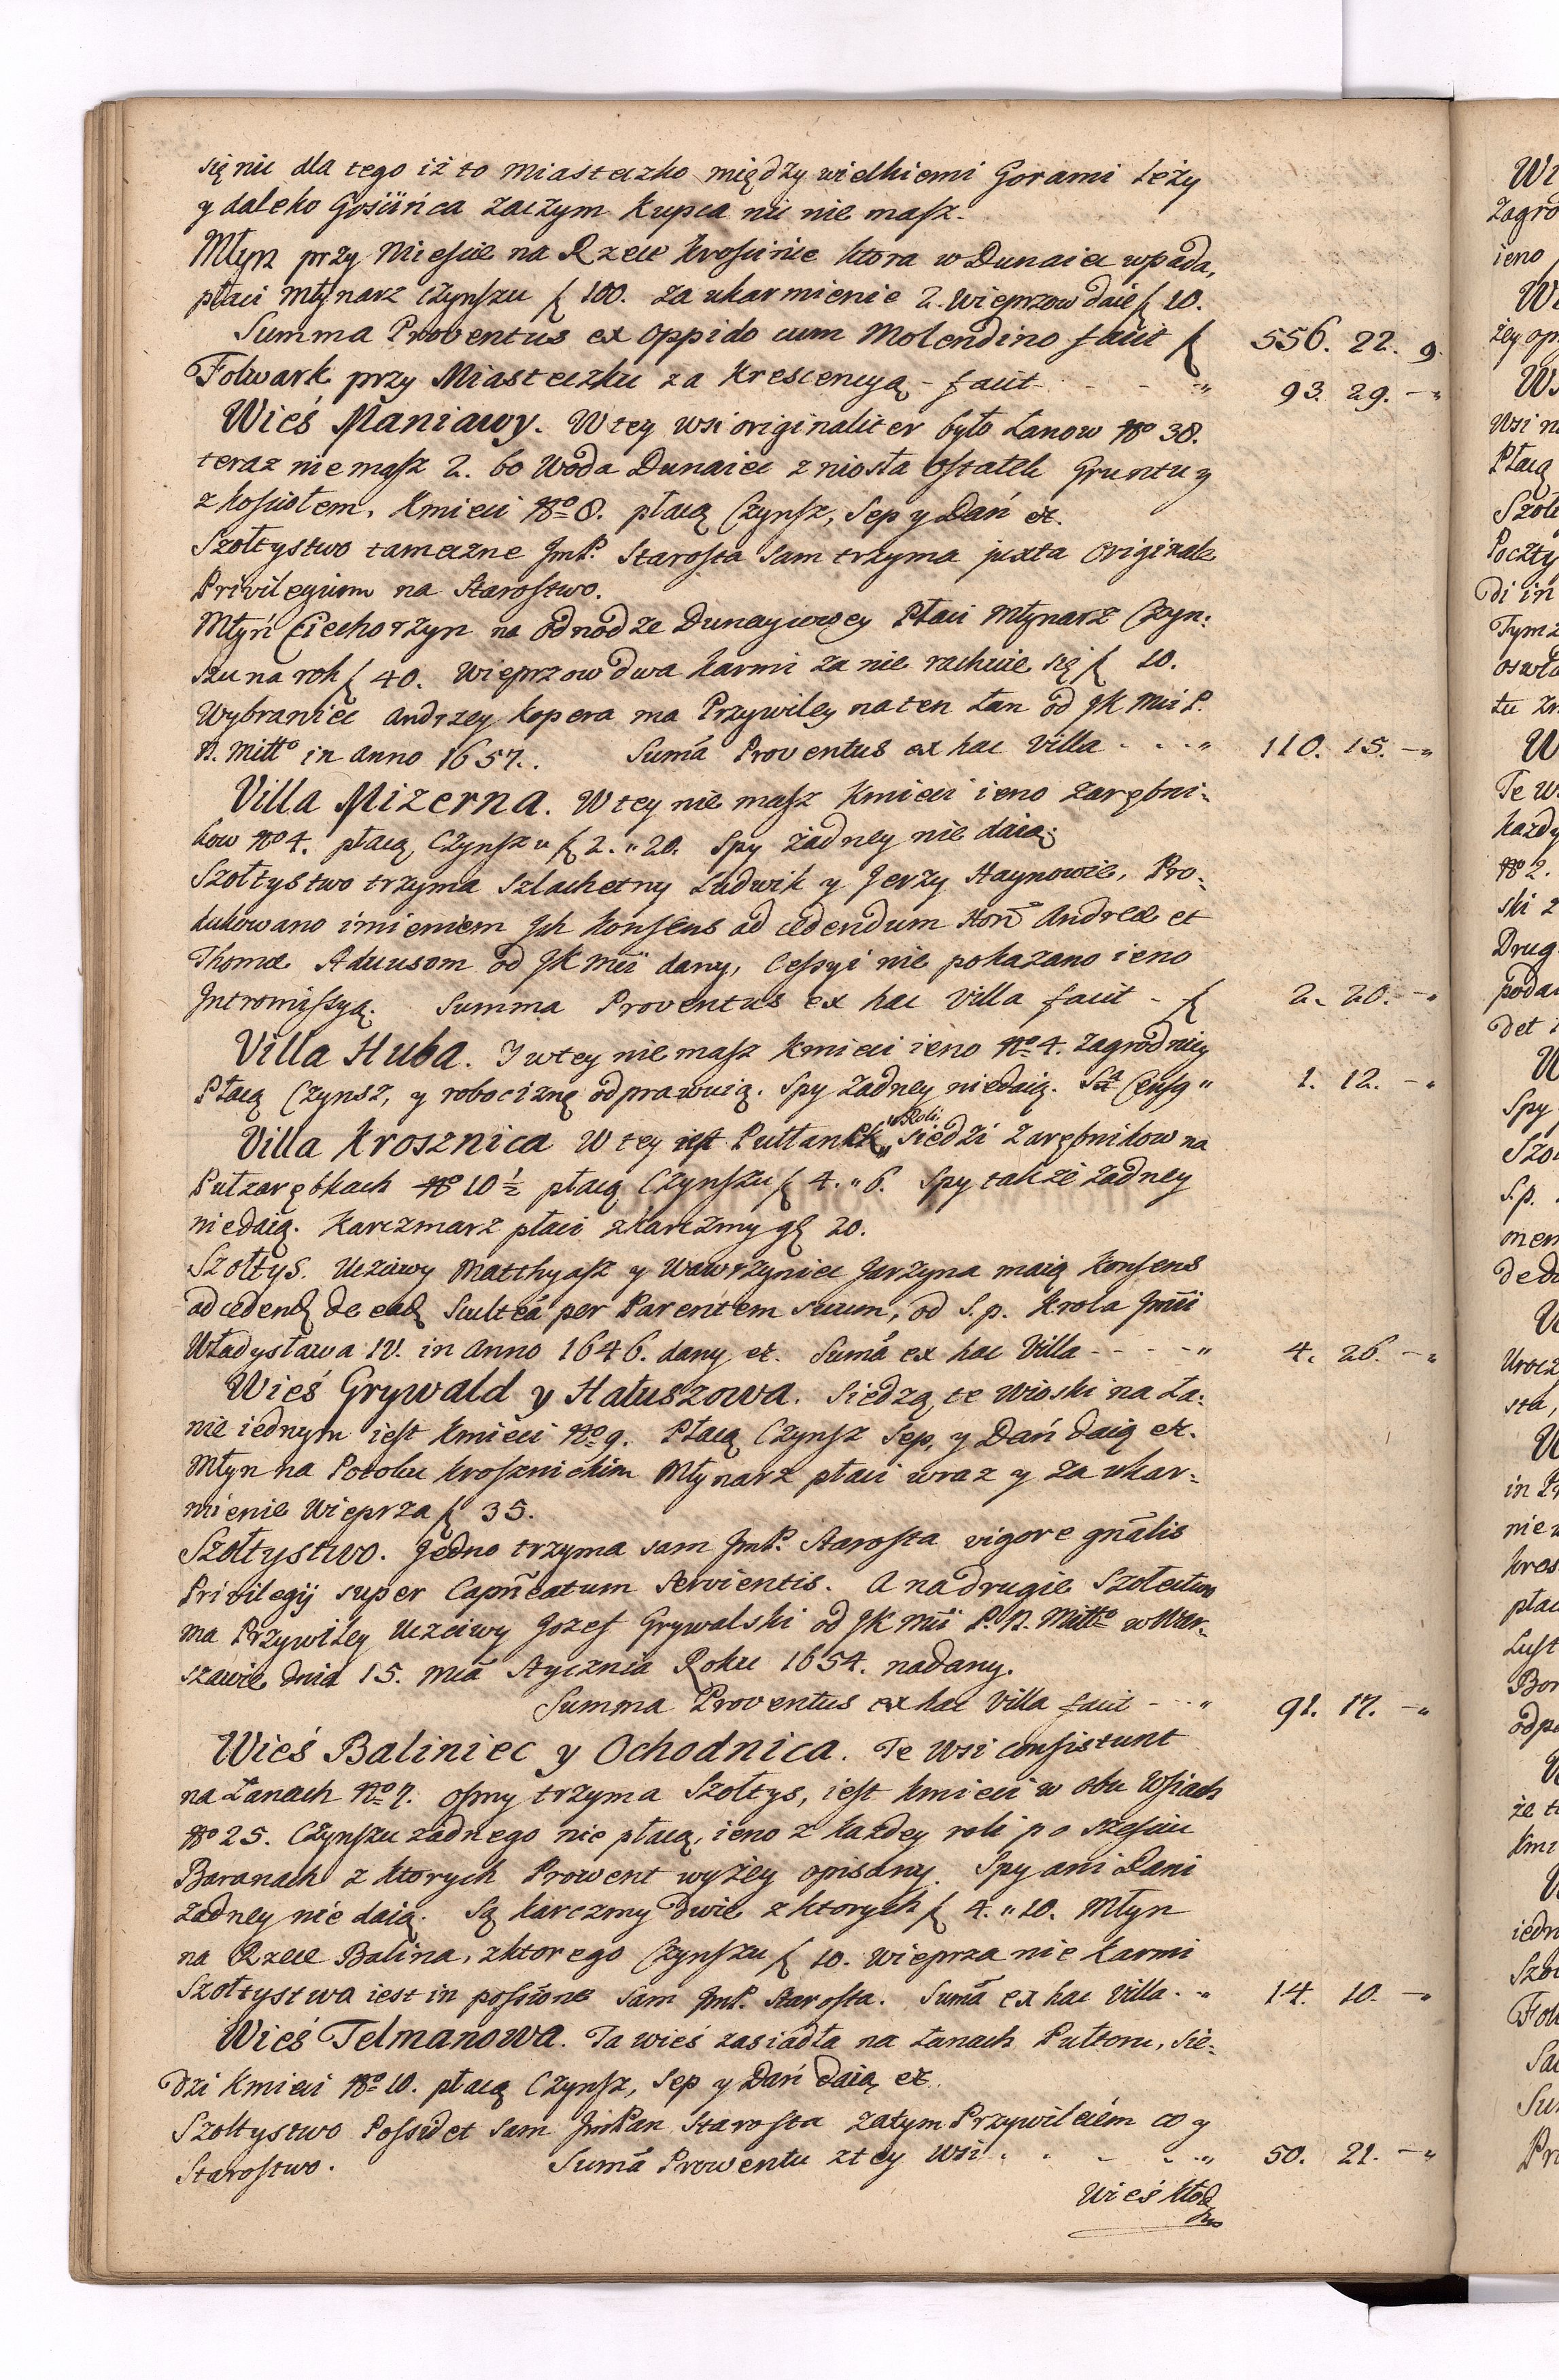 się nic dla tego iż to Miasteczko między wielkiemi Gorami Leży
y daleko Gościńca zaczym Kupca nic nie masz.
Młyn przy Mieście na Rzece Krościnie ktora w Dunaiec wpada,
płaci Młynarz Czynszu f 100. za ukarmienie 2. Wieprzow daie f 10.
Summa Proventus ex Oppido cum Molendino facit f 556. 22. 9.
Folwark przy Miasteczku za Krescencyą - facit - - - „ 93. 29. -„
Wieś Maniawy. W tey wsi originaliter było Łanow No 38.
teraz nie masz 2. bo Woda Dunaiec zniosła Ostatek Gruntu y
z Kosciołem. Kmieci No 8. płacą Czynsz, Sep y Dań etc.
Szołtystwo tameczne JmP. Starosta sam trzyma juxta Originale
Privilegium na Starostwo.
Młyń Ciechorzyn na Odnodze Dunaycowey Płaci Młynarz Czyn:
szu na rok f 40. Wieprzow dwa karmi za nie rachuie się f 10.
Wybraniec Andrzey Kopera ma Przywiley na ten Łan od JK Mci P.
N. Mitto in Anno 1657.. Sumā Proventus ex hac Villa - - - „ 110. 15. -„
Villa Mizerna. W tey nie masz Kmieci ieno Zarębni:
kow No 4. płacą Czynszu f 2. „ 20. Spy żadney nie daią.
Szołtystwo trzyma Szlachetny Ludwik y Jerzy Haynowie, Pro:
dukowano imieniem Jch Konsens ad cedendum Hon. Andreæ et
Thomæ Aduusom od JK Mci dany, Cessyi nie pokazano ieno
Intromissyą. Summa Proventus ex hac Villa facit - f 2. 20. -„
Villa Huba. J w tey nie masz Kmieci ieno No 4. Zagrodnicy
Płacą Czynsz, y robociznę odprawuią. Spy Żadney niedaią. Sa Censq „ 1. 12. -„
w Roli.
Villa Krosznica W tey iest Pułłanek „ siedzi Zarębnikow na
Pułzarębkach No 10 1/2 płacą Czynszu f 4. „ 6. Spy także żadney
niedaią. Karczmarz płaci z Karczmy gl 20.
Szołtys. Uczciwy Matthyasz y Wawrzyniec Jarzyna maią Konsens
ad cedend de ead Scultea per Parentem suum, od S. p. Krola Jmci
Władysława IV. in Anno 1646. dany etc. Sumā ex hac Villa - - - - „ 4. 26. -„
Wieś Grywald y Hałuszowa. Siedzą te Wioski na Ła:
nie iednym iest Kmieci No 9. Płacą Czynsz Sep, y Dań daią etc.
Młyn na Potoku Krosznickim Młynarz płaci wraz y za ukar:
mienie Wieprza f 35.
Szołtystwo. Jedno trzyma sam JmP. Starosta vigore gnālis
Privilegij super Capnēatum servientis. A na drugie Szołectwo
ma Przywiley Uczciwy Jozef Grywalski od JK Mci P. N. Mitto w War:
szawie dnia 15. Mcā Stycznia Roku 1654. nadany.
Summa Proventus ex hac Villa facit - - - „ 91. 17. -„
Wieś Baliniec y Ochodnica. Te Wsi consistunt
na Łanach No 7. osmy trzyma Szołtys, iest Kmieci w obu Wsiach
No 25. Czynszu żadnego nie płacą, ieno z każdey roli po sześciu
Baranach z ktorych Prowent wyżey opisany. Spy ani Dani
żadney nie daią. Są karczmy dwie z ktorych f 4. „ 10. Młyn
na Rzece Balina, z ktorego Czynszu f 10. Wieprza nie karmi
Szołtystwa iest in possione sam JmP. Starosta. Sumā ex hac Villa - „ 14. 10. -„
Wieś Telmanowa. Ta wieś zasiadła na Łanach Pułtoru, sie:
dzi Kmieci No 10. płacą Czynsz, Sep y Dań daią etc.
Szołtystwo Possidet sam JmPan Starosta zatym Przywileiem co y
Starostwo. Sumā Prowentu z tey Wsi - - - - „ 50. 21. -„
Wieś Kłod